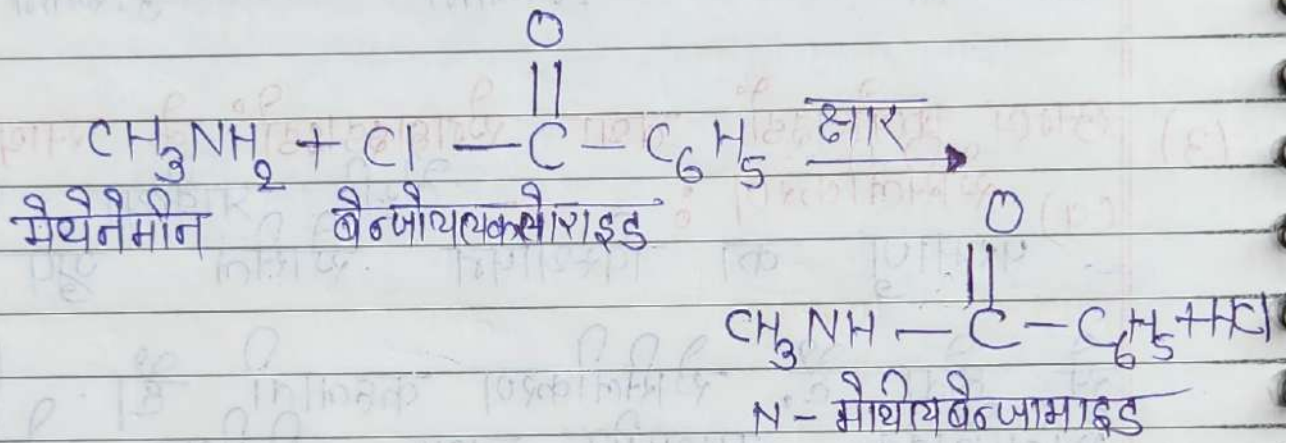 O
||
CH₃NH₂ + Cl — C — C₆H₅ क्षार →
मैथेनेमीन बेन्जोयलक्लोराइड
O
||
CH₃NH — C — C₆H₅ + HCl
N - मैथीलबेन्जामाइड